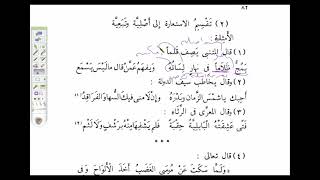 ٨٢
(٢) تَقْسِيمُ الاستعارة إلى أَصْلِيَّة وتَبَعِيَّة
الأمثلة:
(١) قال المتنبي يَصِف قلماً
يَمُجُّ ظَلَاماً فى نَهارٍ لِسَانُهُ ويَفْهَمُ عَمَّنْ قال ما لَيْسَ يَسْمَع
(٢) وقال يخاطِب سيفَ الدولة :
أُحِبُّكَ يا شَمْسَ الزَّمان وبَدْرَهُ وإن لامَنى فيك السُّها والفَرَاقِدُ
(٣) وقال المعرِّى فى الرِّثاء :
فَتًى عَشِقَتْهُ البَابِليَّةُ حِقْبَةً فَلَمْ يَشْفِهَا مِنْهُ بِرَشْفٍ وَلَا لَثْمِ
(٤) قال تعالى :
وَلَمَّا سَكَتَ عَنْ مُوسَى الغَضَبُ أَخَذَ الأَلْوَاحَ وَفِى